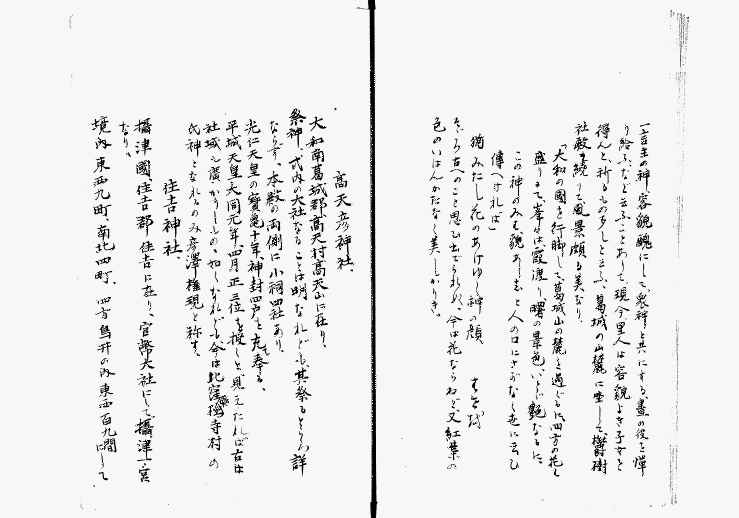 一言主の神容貌醜にして、衆神と共にする、晝の役を憚
り給ふなど云ふことあり、現今里人は容貌よき子女を
得んと祈るもの多しと云ふ、葛城の山麓に坐して、欝樹
社殿を繞りて風景頗る美なり、
「大和の國を行脚して、葛城山の麓を過ぐるに、四方の花も
盛りにて、峯々は霞渡り、曙の景色、いとゞ艶なるに
この神のみ貌あしゝと人の口にさがなく世に云ひ
傳へければ」
猶みたし花のあけゆく神の顔　はせを
そゞろ古へのこと思ひ出でられぬ、今は花ならねど、又紅葉の
色のいはんかたなく美しかりき。
高天彦神社、
大和南葛城郡高天村高天山に在り、
祭神、式内の大社なることは明なれども、其祭るところ詳
ならず、本殿の両側に小祠四社あり、
光仁天皇の寶亀十年、神封四戸を充て奉る、
平城天皇大同元年、四月正三位を授くと見えたれば古は
社域も廣かりしものゝ如し、されども今は北窪 寺村の
氏神となれるのみ、彦澤権現と称す、
住吉神社、
攝津國、住吉郡住吉に在り、官幣大社にして攝津一宮
なり、
境内東西九町、南北四町、四方鳥井の内東西百九間にして